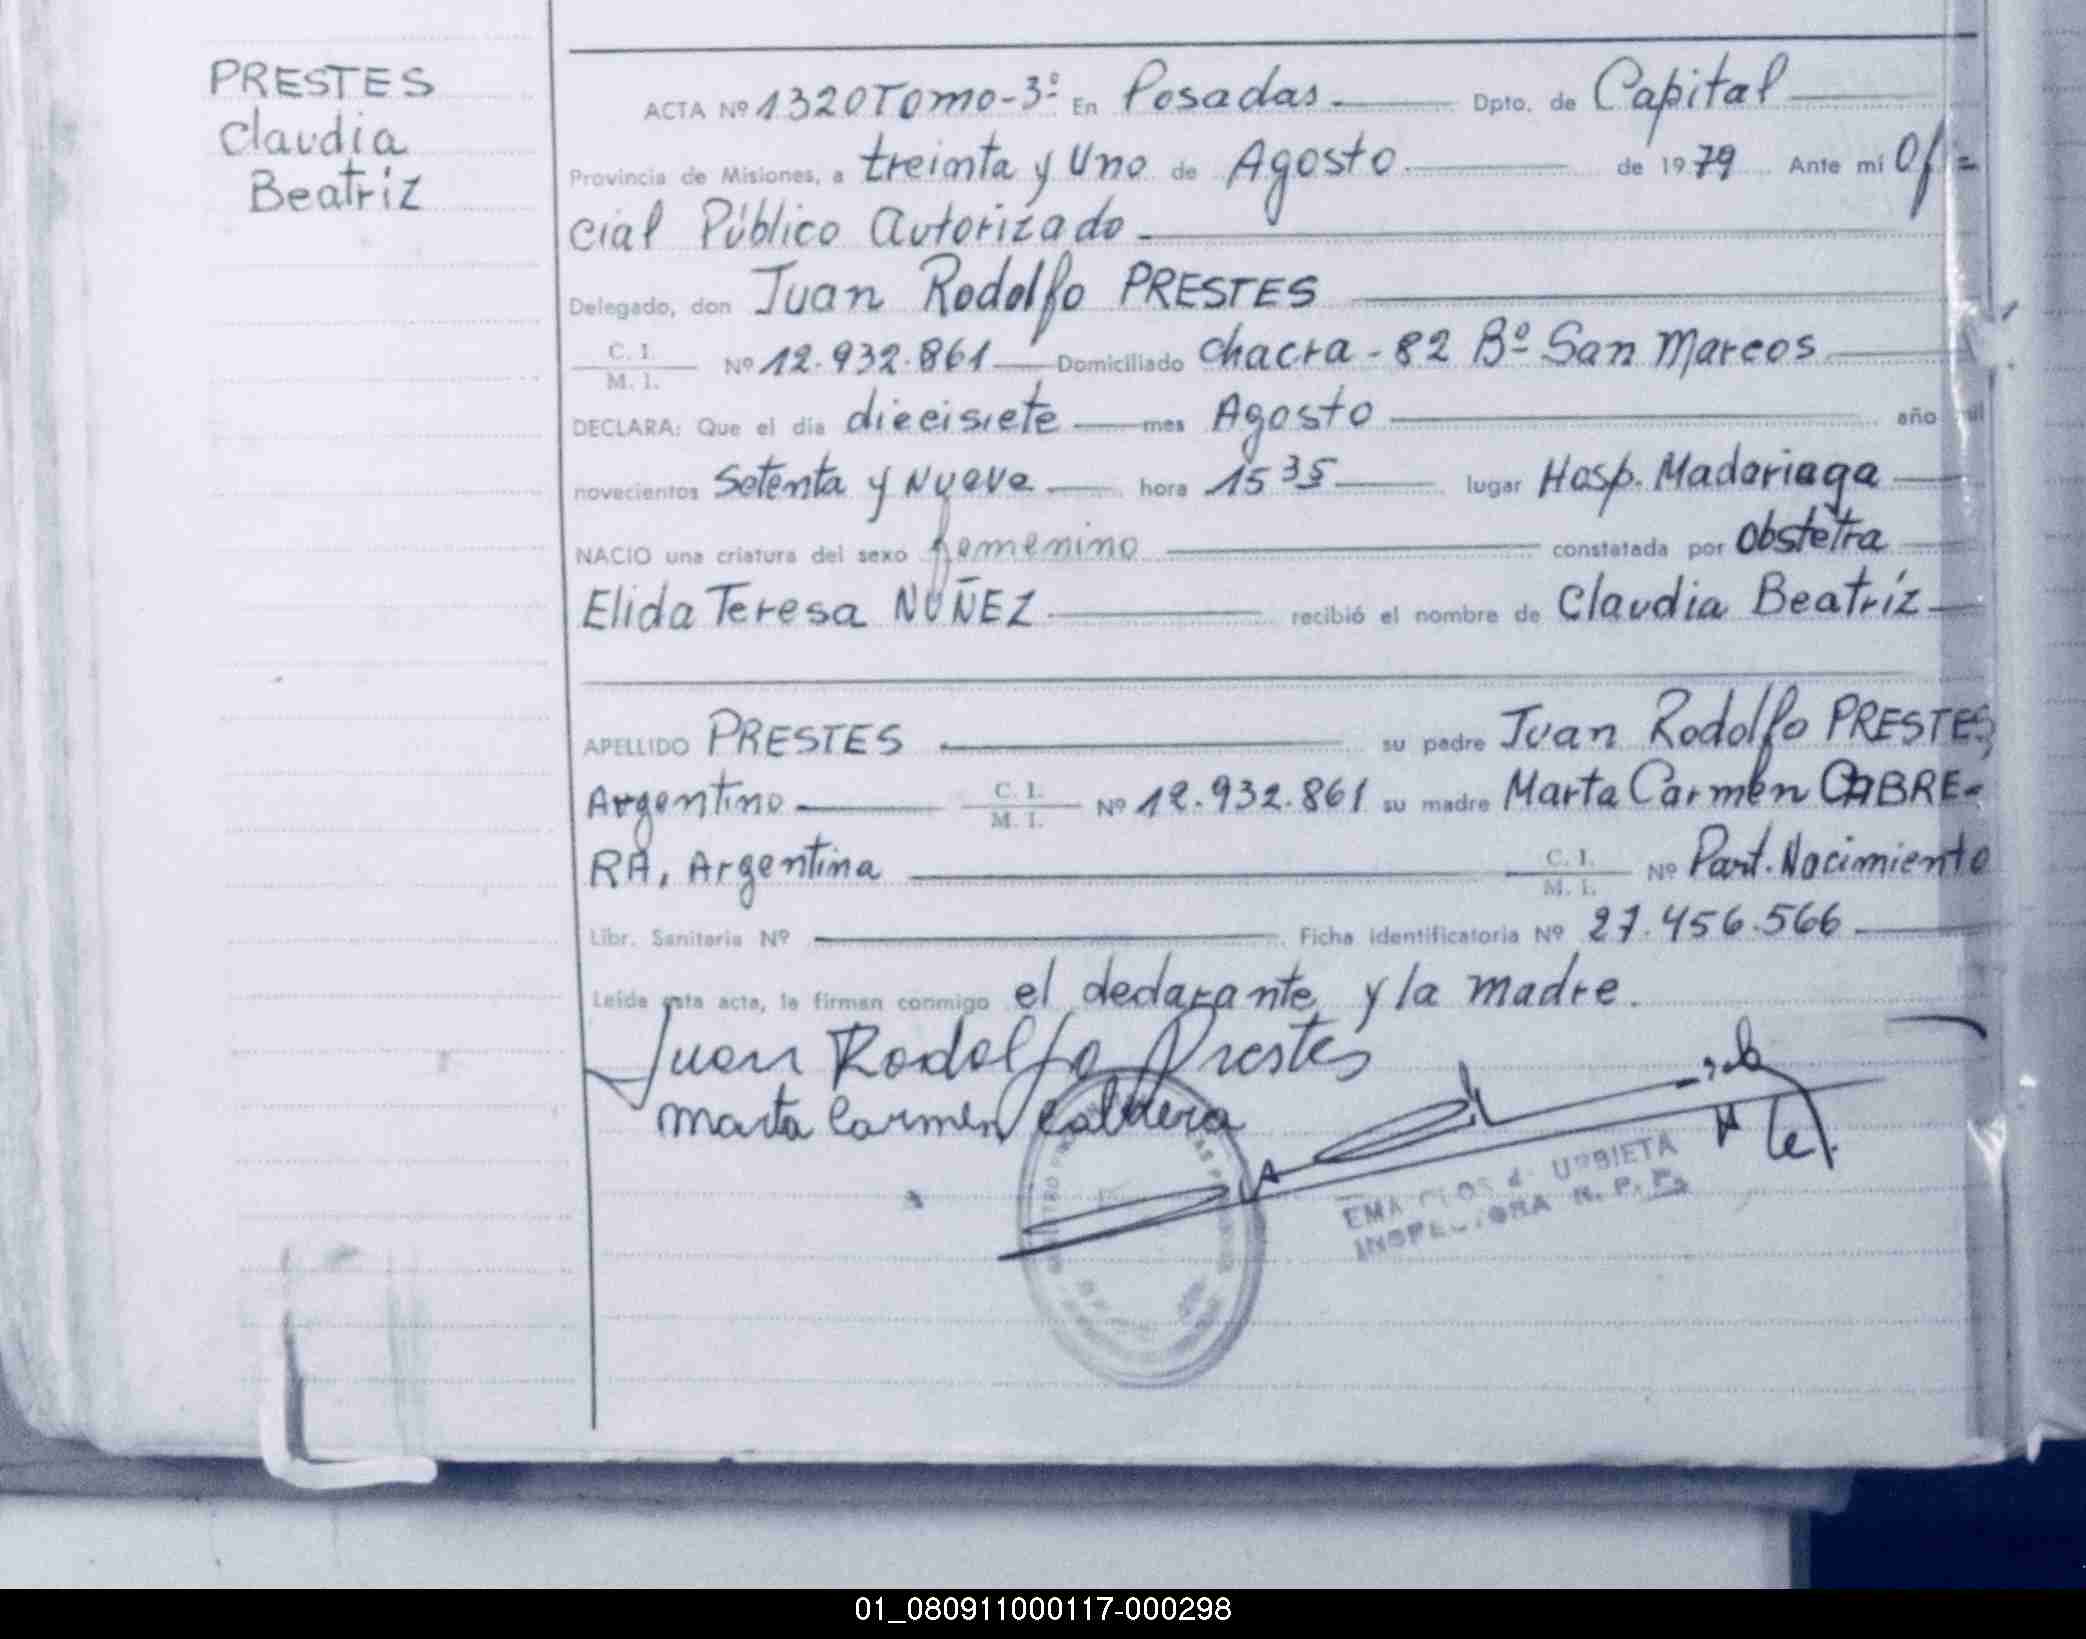 PRESTES
Claudia
Beatriz
ACTA Nº 1320 Tomo-3º En Posadas Dpto. de Capital
Provincia de Misiones, a treinta y Uno de Agosto de 1979 Ante mí Ofi=
cial Público Autorizado
Delegado, don Juan Rodolfo PRESTES
C. I.
M. I. Nº 12.932.861 Domiciliado Chacra - 82 Bº San Marcos
DECLARA: Que el día diecisiete mes Agosto año mil
novecientos Setenta y Nueve hora 15 35 lugar Hosp. Madariaga
NACIO una criatura del sexo femenino constatada por Obstetra
Elida Teresa NUÑEZ recibió el nombre de Claudia Beatriz
APELLIDO PRESTES su padre Juan Rodolfo PRESTES,
Argentino C. I. M. I. Nº 12.932.861 su madre Marta Carmen CABRE-
RA, Argentina C. I. M. I. Nº Part. Nacimiento
Libr. Sanitaria Nº Ficha Identificatoria Nº 27.456.566
Leída esta acta, la firman conmigo el declarante y la madre.
Juan Rodolfo Prestes
Marta Carmen Cabrera
EMA URBIETA
INSPECTORA R. P. P.
01_080911000117-000298